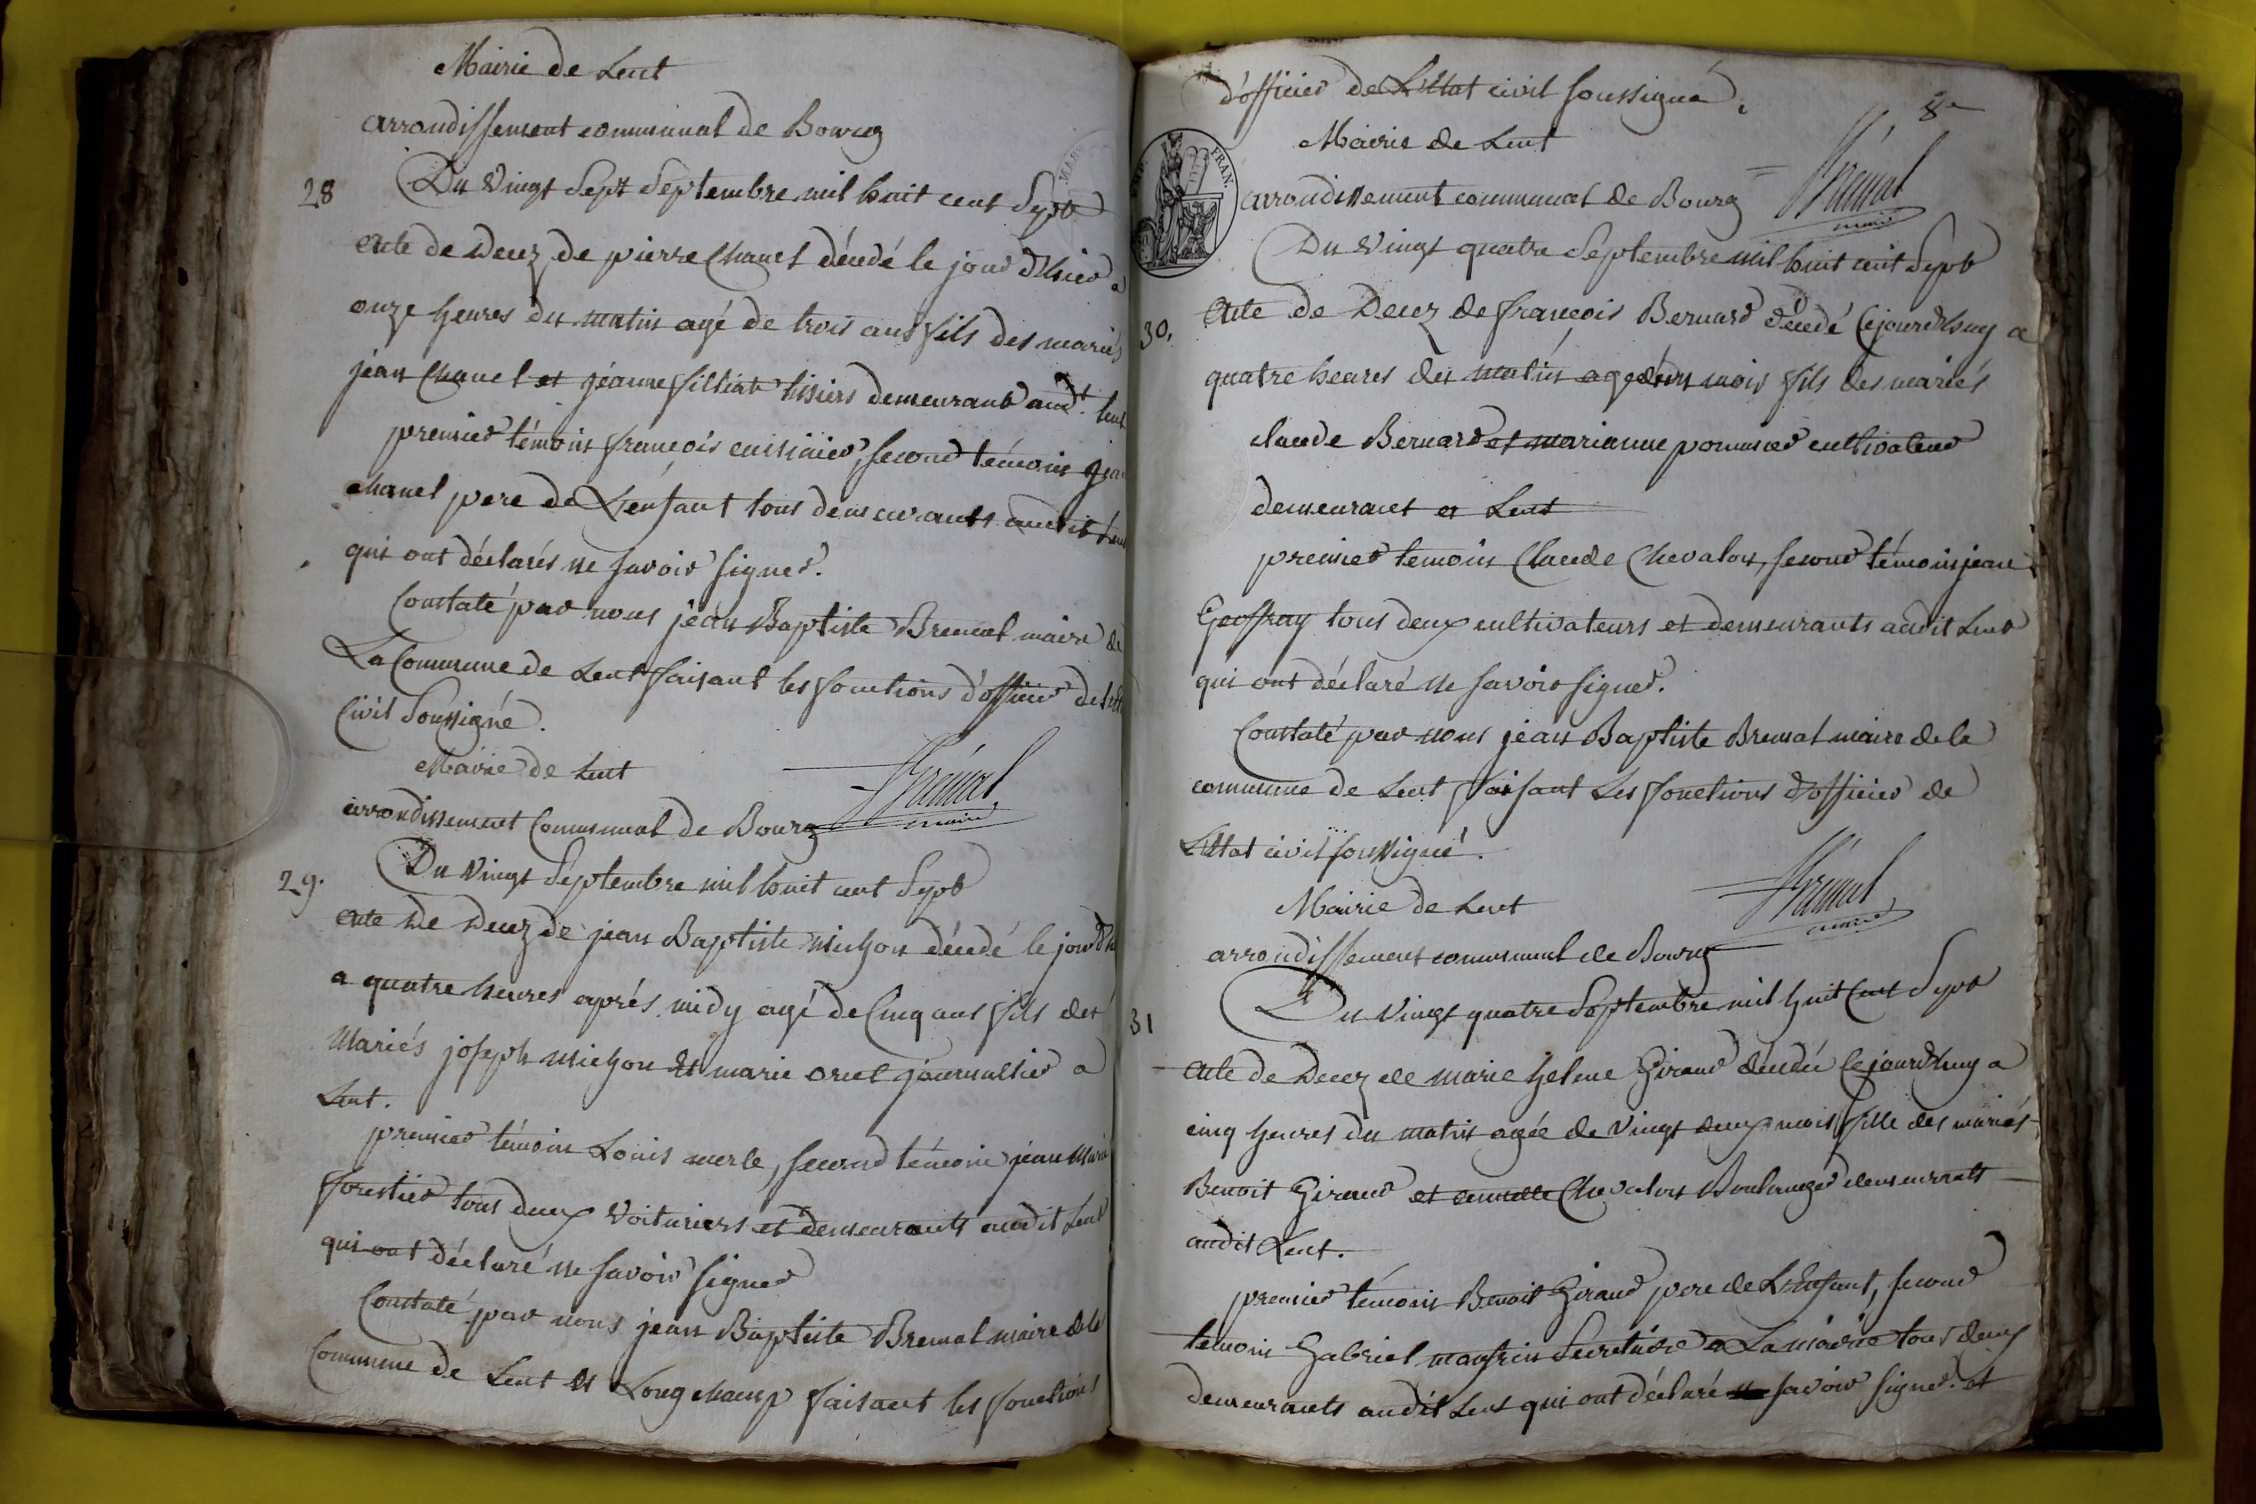 Mairie de Lent
arrondissement communal de Bourg
28 Du Vingt Sept Septembre mil huit cent Sept
Acte de Decez de pierre Chanel décédé le jour d'hier a
onze heures du matin agé de trois ans fils des mariés
jean Chanel et jeanne filliat tisiers demeurant aud.t Lent
premier témoin françois cuisinier, second témoin jean
chanel pere de L'enfant tous demeurants audit Lent
qui ont déclarés ne savoir signer.
Constaté par nous jean Baptiste Bremal maire de
La Commune de Lent faisant les fonctions d'officier de
Civil Soussigné.
Bremal
maire
Mairie de Lent
arrondissement Communal de Bourg
29. Du Vingt Septembre mil huit cent Sept
Acte De Decez de jean Baptiste Michon décédé le jour
a quatre heures aprés midy agé de Cinq ans fils des
Mariés joseph Michon Et marie orcel journallier a
Lent.
premier témoin Louis merle, second témoin jean Marie
forestier tous deux Voituriers et demeurants audit Lent
qui ont déclaré ne savoir signer
Constaté par nous jean Baptiste Bremal maire de la
Commune de Lent et Longchamp faisant les fonctions
d'officier de L'Etat civil soussigné.
8e
Mairie de Lent
Bremal
maire
arrondissement communal de Bourg
FRAN.
Du Vingt quatre Septembre mil huit cent Sept
30. Acte de Decez de françois Bernard décédé Cejourdhuy a
quatre heures du matin agé mois fils des mariés
claude Bernard et marianne pommier cultivateur
demeurant a Lent
premier temoin Claude Chevalon, second témoin jean
Geoffray tous deux cultivateurs et demeurants audit Lent
qui ont déclaré ne savoir signer.
Constaté par nous jean Baptiste Bremal maire de la
commune de Lent faisant Les fonctions d'officier de
L'Etat civil soussigné.
Bremal
maire
Mairie de Lent
arrondissement communal de Bourg
31 Du Vingt quatre Septembre mil huit Cent Sept
Acte de Decez de Marie helene Giraud décédée Cejourdhuy a
cinq heures du matin agée de Vingt deux mois fille des mariés
Benoit Giraud et Chevalon Boulanger demeurants
audit Lent.
premier témoin Benoit Giraud pere de L'Enfant, second
témoin Gabriel Secretaire a La mairie tous deux
demeurants audit Lent qui ont déclaré savoir signer. et